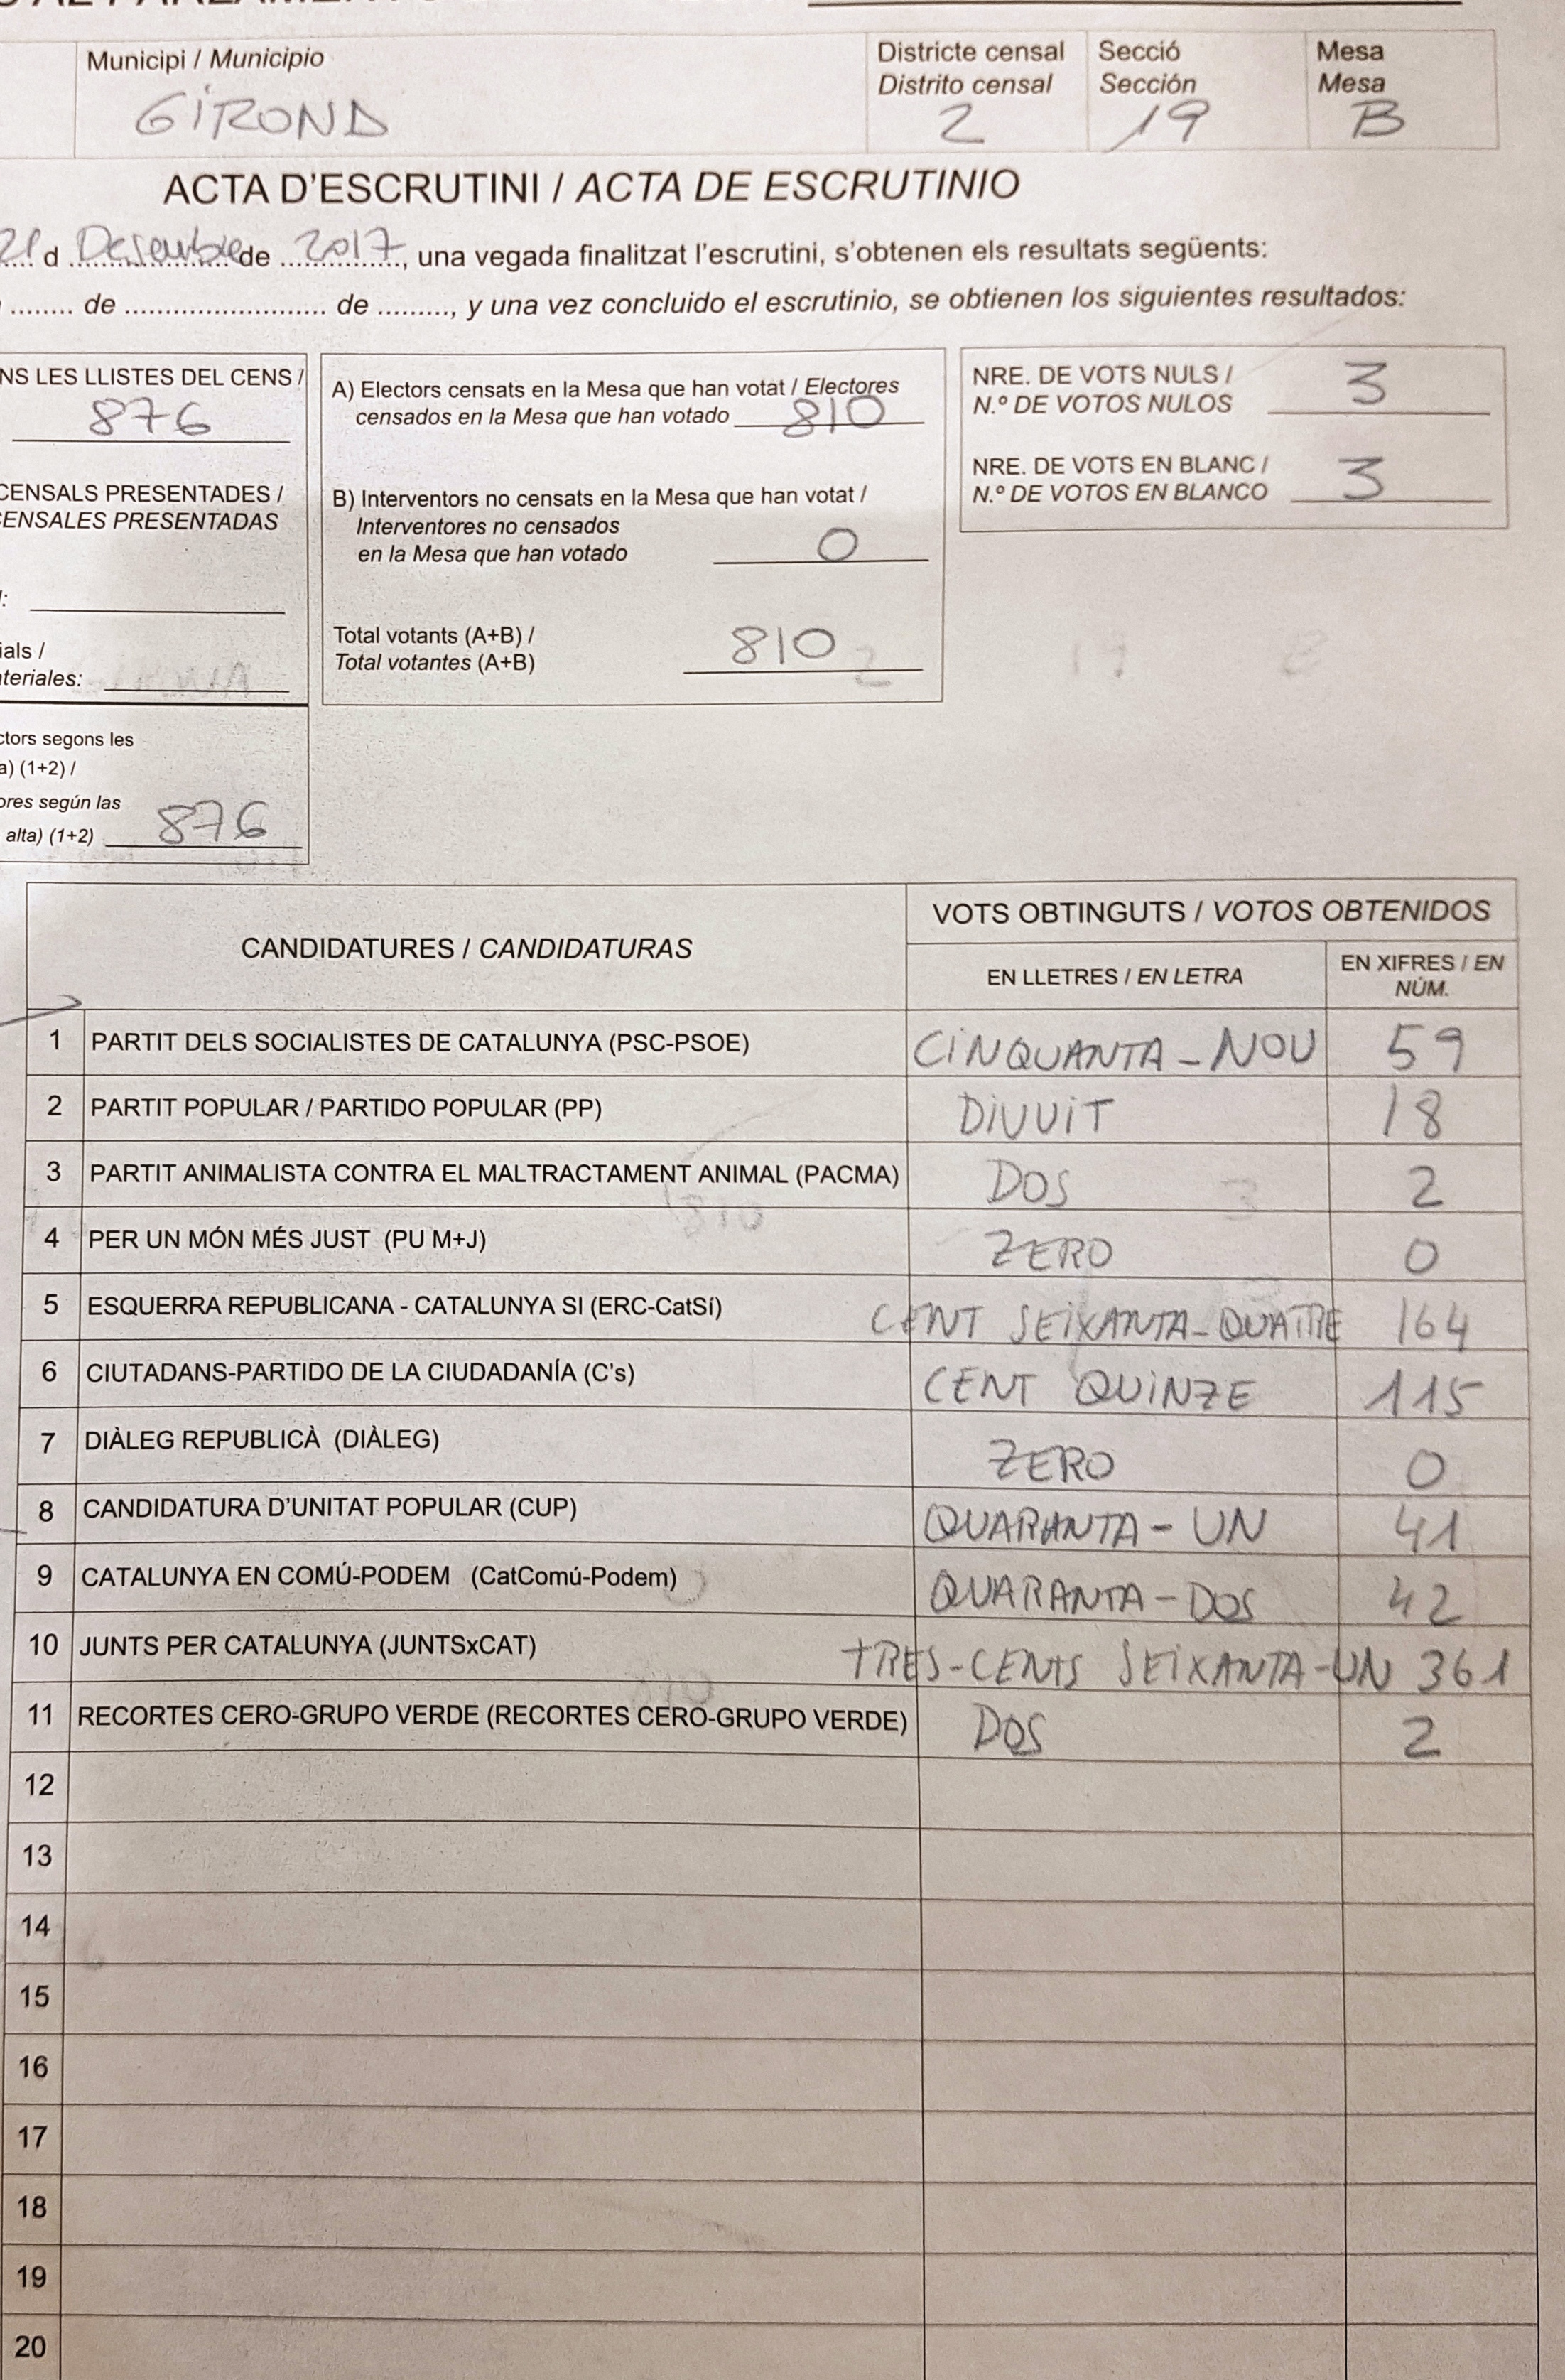 Municipi / Municipio
GIRONA
Districte censal
Distrito censal
2
Secció
Sección
19
Mesa
Mesa
B
ACTA D'ESCRUTINI / ACTA DE ESCRUTINIO
21 d Desembre de 2017, una vegada finalitzat l'escrutini, s'obtenen els resultats següents:
........ de ........................ de ........., y una vez concluido el escrutinio, se obtienen los siguientes resultados:
LES LLISTES DEL CENS /
876
CENSALS PRESENTADES /
CENSALES PRESENTADAS
ials /
ateriales:
ctors segons les
a) (1+2) /
ores según las
alta) (1+2) 876
A) Electors censats en la Mesa que han votat / Electores
censados en la Mesa que han votado 810
B) Interventors no censats en la Mesa que han votat /
Interventores no censados
en la Mesa que han votado 0
Total votants (A+B) /
Total votantes (A+B) 810
NRE. DE VOTS NULS /
N.º DE VOTOS NULOS 3
NRE. DE VOTS EN BLANC /
N.º DE VOTOS EN BLANCO 3
CANDIDATURES / CANDIDATURAS
VOTS OBTINGUTS / VOTOS OBTENIDOS
EN LLETRES / EN LETRA
EN XIFRES / EN
NÚM.
1 PARTIT DELS SOCIALISTES DE CATALUNYA (PSC-PSOE) CINQUANTA-NOU 59
2 PARTIT POPULAR / PARTIDO POPULAR (PP) DIVUIT 18
3 PARTIT ANIMALISTA CONTRA EL MALTRACTAMENT ANIMAL (PACMA) DOS 2
4 PER UN MÓN MÉS JUST (PU M+J) ZERO 0
5 ESQUERRA REPUBLICANA - CATALUNYA SI (ERC-CatSí) CENT SEIXANTA-QUATRE 164
6 CIUTADANS-PARTIDO DE LA CIUDADANÍA (C's) CENT QUINZE 115
7 DIÀLEG REPUBLICÀ (DIÀLEG) ZERO 0
8 CANDIDATURA D'UNITAT POPULAR (CUP) QUARANTA-UN 41
9 CATALUNYA EN COMÚ-PODEM (CatComú-Podem) QUARANTA-DOS 42
10 JUNTS PER CATALUNYA (JUNTSxCAT) TRES-CENTS SEIXANTA-UN 361
11 RECORTES CERO-GRUPO VERDE (RECORTES CERO-GRUPO VERDE) DOS 2
12
13
14
15
16
17
18
19
20